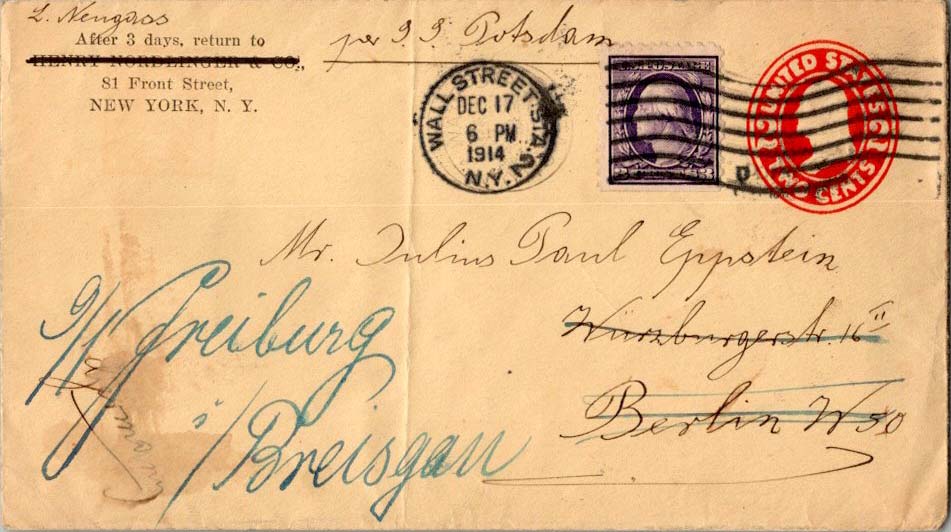 L. Neugass
After 3 days, return to
HENRY NORDLINGER & CO.,
81 Front Street,
NEW YORK, N. Y.
per S S Potsdam
WALL STREET STA.
DEC 17
6 PM
1914
N.Y. 2
UNITED STATES
2 2
TWO CENTS
Mr. Julius Paul Eppstein
Würzburgerstr. 16 II
Berlin W 50
Freiburg
i/Breisgau